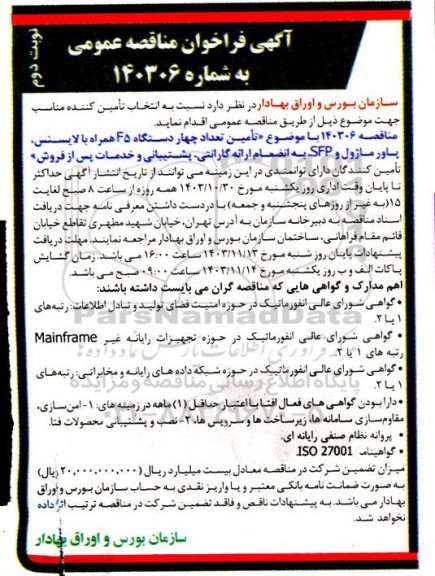 نوبت دوم
آگهی فراخوان مناقصه عمومی
به شماره ۱۴۰۳۰۶
سازمان بورس و اوراق بهادار در نظر دارد نسبت به انتخاب تأمین کننده مناسب
جهت موضوع ذیل از طریق مناقصه عمومی اقدام نماید.
مناقصه ۱۴۰۳۰۶ با موضوع «تأمین تعداد چهار دستگاه F5 همراه با لایسنس،
پاور ماژول و SFP، به انضمام ارائه گارانتی، پشتیبانی و خدمات پس از فروش»
تأمین کنندگان دارای توانمندی در این زمینه می توانند از تاریخ انتشار آگهی حداکثر
تا پایان وقت اداری روز یکشنبه مورخ ۱۴۰۳/۱۰/۳۰ همه روزه از ساعت ۸ صبح لغایت
۱۵ (به غیر از روزهای پنجشنبه و جمعه) با در دست داشتن معرفی نامه جهت دریافت
اسناد مناقصه به دبیرخانه سازمان به آدرس تهران، خیابان شهید مطهری تقاطع خیابان
قائم مقام فراهانی، ساختمان سازمان بورس و اوراق بهادار مراجعه نمایند. مهلت دریافت
پیشنهادات پایان روز شنبه مورخ ۱۴۰۳/۱۱/۱۳ ساعت ۱۶:۰۰ می باشد. زمان گشایش
پاکات الف و ب روز یکشنبه مورخ ۱۴۰۳/۱۱/۱۴ ساعت ۰۹:۰۰ صبح می باشد.
اهم مدارک و گواهی هایی که مناقصه گران می بایست داشته باشند:
• گواهی شورای عالی انفورماتیک در حوزه امنیت فضای تولید و تبادل اطلاعات: رتبه های
۱ یا ۲.
• گواهی شورای عالی انفورماتیک در حوزه تجهیزات رایانه غیر Mainframe
رتبه های ۱ یا ۲.
• گواهی شورای عالی انفورماتیک در حوزه شبکه داده های رایانه و مخابراتی: رتبه های
۱ یا ۲.
• دارا بودن گواهی های فعال افتا با اعتبار حداقل (۱) ماهه در زمینه های: ۱- امن سازی،
مقاوم سازی سامانه ها، زیرساخت ها و سرویس ها، ۲- نصب و پشتیبانی محصولات فتا.
• پروانه نظام صنفی رایانه ای.
• گواهینامه ISO 27001.
میزان تضمین شرکت در مناقصه معادل بیست میلیارد ریال (۲۰,۰۰۰,۰۰۰,۰۰۰ ریال)
به صورت ضمانت نامه بانکی معتبر و یا واریز نقدی به حساب سازمان بورس و اوراق
بهادار می باشد. به پیشنهادات ناقص و فاقد تضمین شرکت در مناقصه ترتیب اثر داده
نخواهد شد.
سازمان بورس و اوراق بهادار
ParsNamadData
پایگاه اطلاع رسانی مناقصه و مزایده